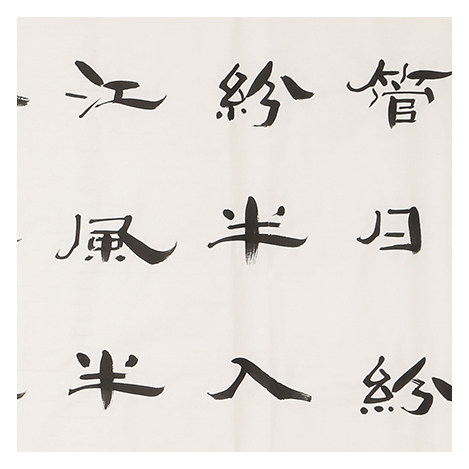 管日紛
紛半入
江風半